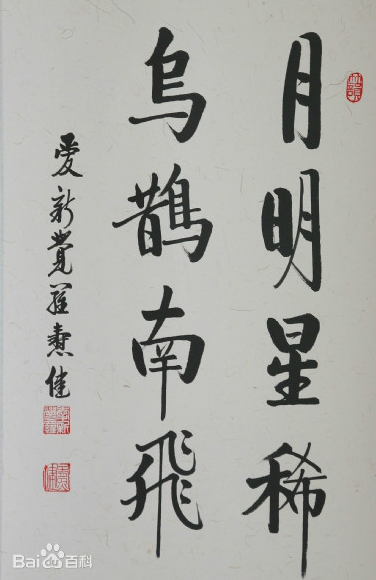 月明星稀
烏鵲南飛
愛新覺羅佳
Bai百科